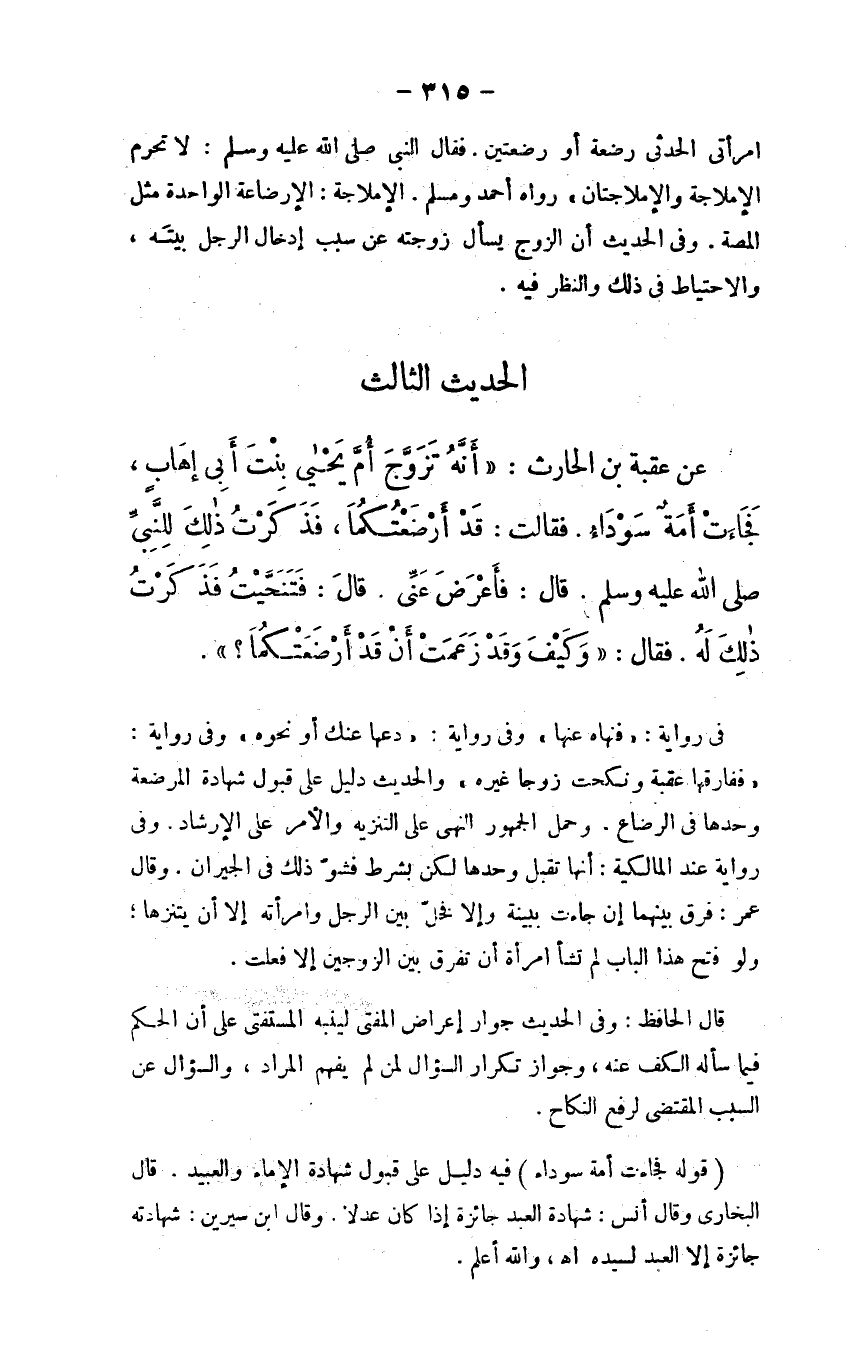 - ٣١٥ -
امرأتى الحدثى رضعة أو رضعتين . فقال النبى صلى الله عليه وسلم : لا تحرم
الإملاجة والإملاجتان » رواه أحمد ومسلم . الإملاجة : الإرضاعة الواحدة مثل
المصة . وفى الحديث أن الزوج يسأل زوجته عن سبب إدخال الرجل بيتـه ،
والاحتياط فى ذلك والنظر فيه .
الحديث الثالث
عن عقبة بن الحارث : « أَنَّهُ تَزَوَّجَ أُمَّ يَحْيٰى بِنْتَ أَبِى إهَابٍ ،
فَجَاءَتْ أَمَةٌ سَوْدَاءُ . فقالت : قَدْ أَرْضَعْتُـكُمَا ، فَذَ كَرْتُ ذٰلِكَ لِلنَّبِىِّ
صلى الله عليه وسلم . قال : فأَعْرَضَ عَنِّى . قالَ : فَتَنَحَّيْتُ فَذَ كَرْتُ
ذٰلِكَ لَهُ . فقال : « وَكَيْفَ وَقَدْ زَعَمَتْ أَنْ قَدْ أَرْضَعَتْـكُمَا ؟ » .
فى رواية : « فنهاه عنها » وفى رواية : « دعها عنك أو نحوه » وفى رواية :
« ففارقها عقبة ونكحت زوجا غيره » والحديث دليل على قبول شهادة المرضعة
وحدها فى الرضاع . وحمل الجمهور النهى على التنزيه والأمر على الإرشاد . وفى
رواية عند المالكية : أنها تقبل وحدها لكن بشرط فشوّ ذلك فى الجيران . وقال
عمر : فرق بينهما إن جاءت ببينة وإلا فخلّ بين الرجل وامرأته إلا أن يتنزها ؛
ولو فتح هذا الباب لم تشأ امرأة أن تفرق بين الزوجين إلا فعلت .
قال الحافظ : وفى الحديث جوار إعراض المفتى لينبه المستفتى على أن الحـكم
فيما سأله الـكف عنه ، وجواز تـكرار السؤال لمن لم يفهم المراد ، والسؤال عن
السبب المقتضى لرفع النكاح .
( قوله فجاءت أمة سوداء ) فيه دليـل على قبول شهادة الإماء والعبيد . قال
البخارى وقال أنس : شهادة العبد جائزة إذا كان عدلا . وقال ابن سيرين : شهادته
جائزة إلا العبد لسيده اه ، والله أعلم .